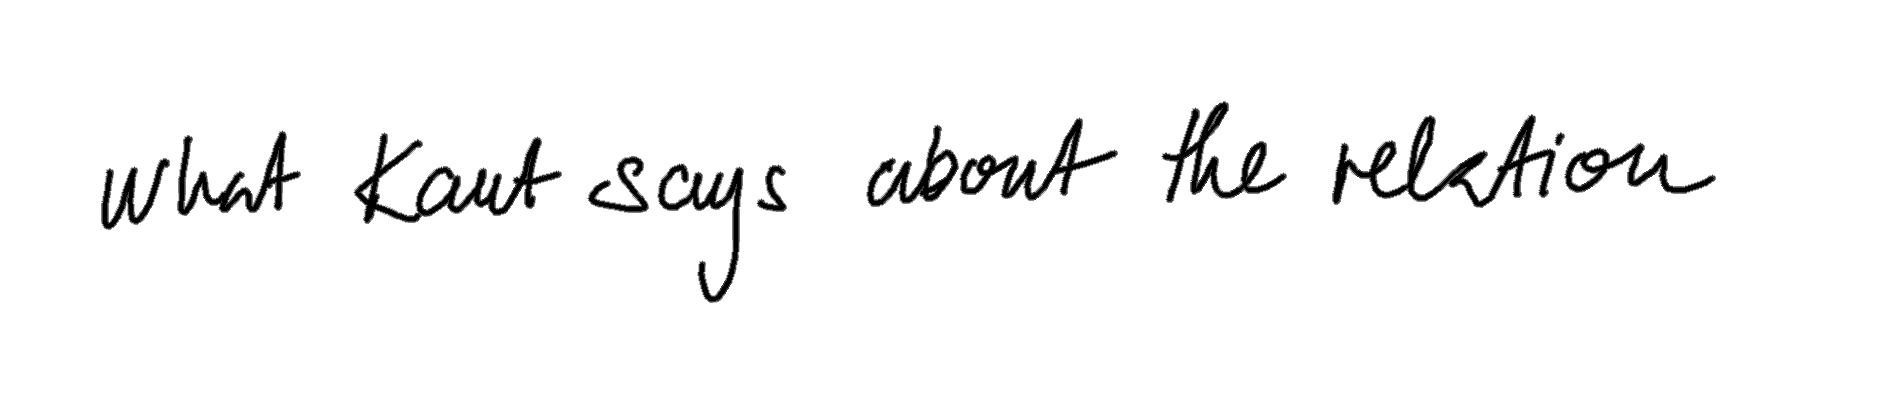 what Kant says about the relation